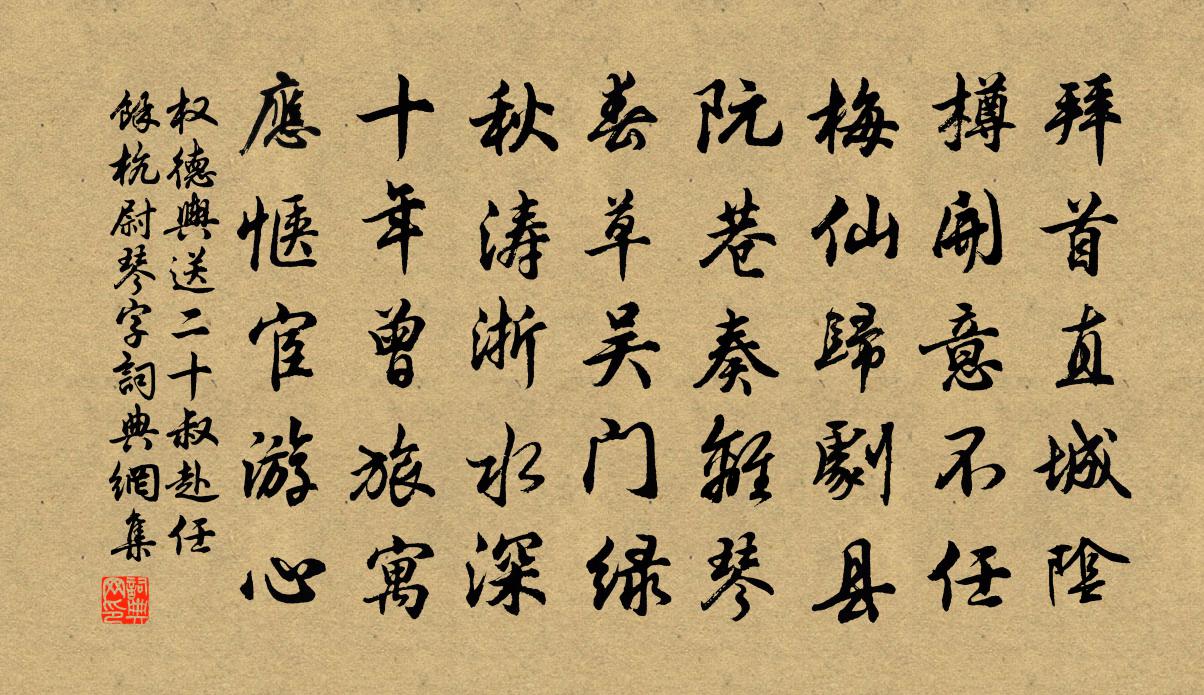 拜首直城陰
樽開意不任
梅仙歸劇县
阮巷奏離琴
春草吴门绿
秋涛浙水深
十年曾旅寓
應惬宦游心
权德輿送二十叔赴任
餘杭尉琴字詞典網集
詞典网印